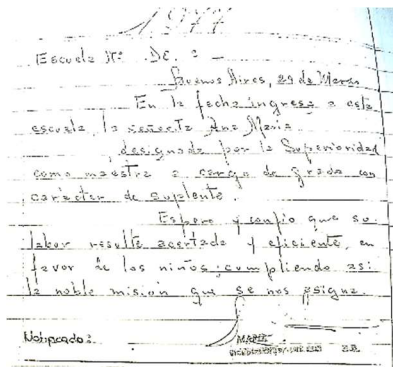 1977
Escuela Nº DE. :
Buenos Aires, 29 de Marzo
En la fecha ingresa a esta
escuela, la señorita Ana María
, designada por la Superioridad
como maestra a cargo de grado con
carácter de suplente.
Espero y confío que su
labor resulte acertada y eficiente, en
favor de los niños, cumpliendo así
la noble misión que se nos asigna.
Notificado:
MARIE